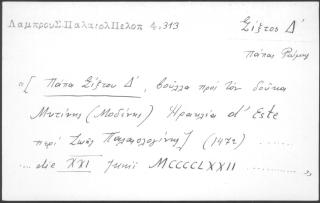 ΛαμπρουΣ.ΠαλαιολΠελοπ 4.313
Σίξτος Δ'
Πάπας Ρώμης
"[ Πάπα Σίξτου Δ', βούλλα πρός τόν δούκα
Μυτίνης (Μοδένης) Ηρακλέα d' Este
περί Ζωής Παλαιολογίνης] (1472)
... die XXI Junii MCCCCLXXII ...